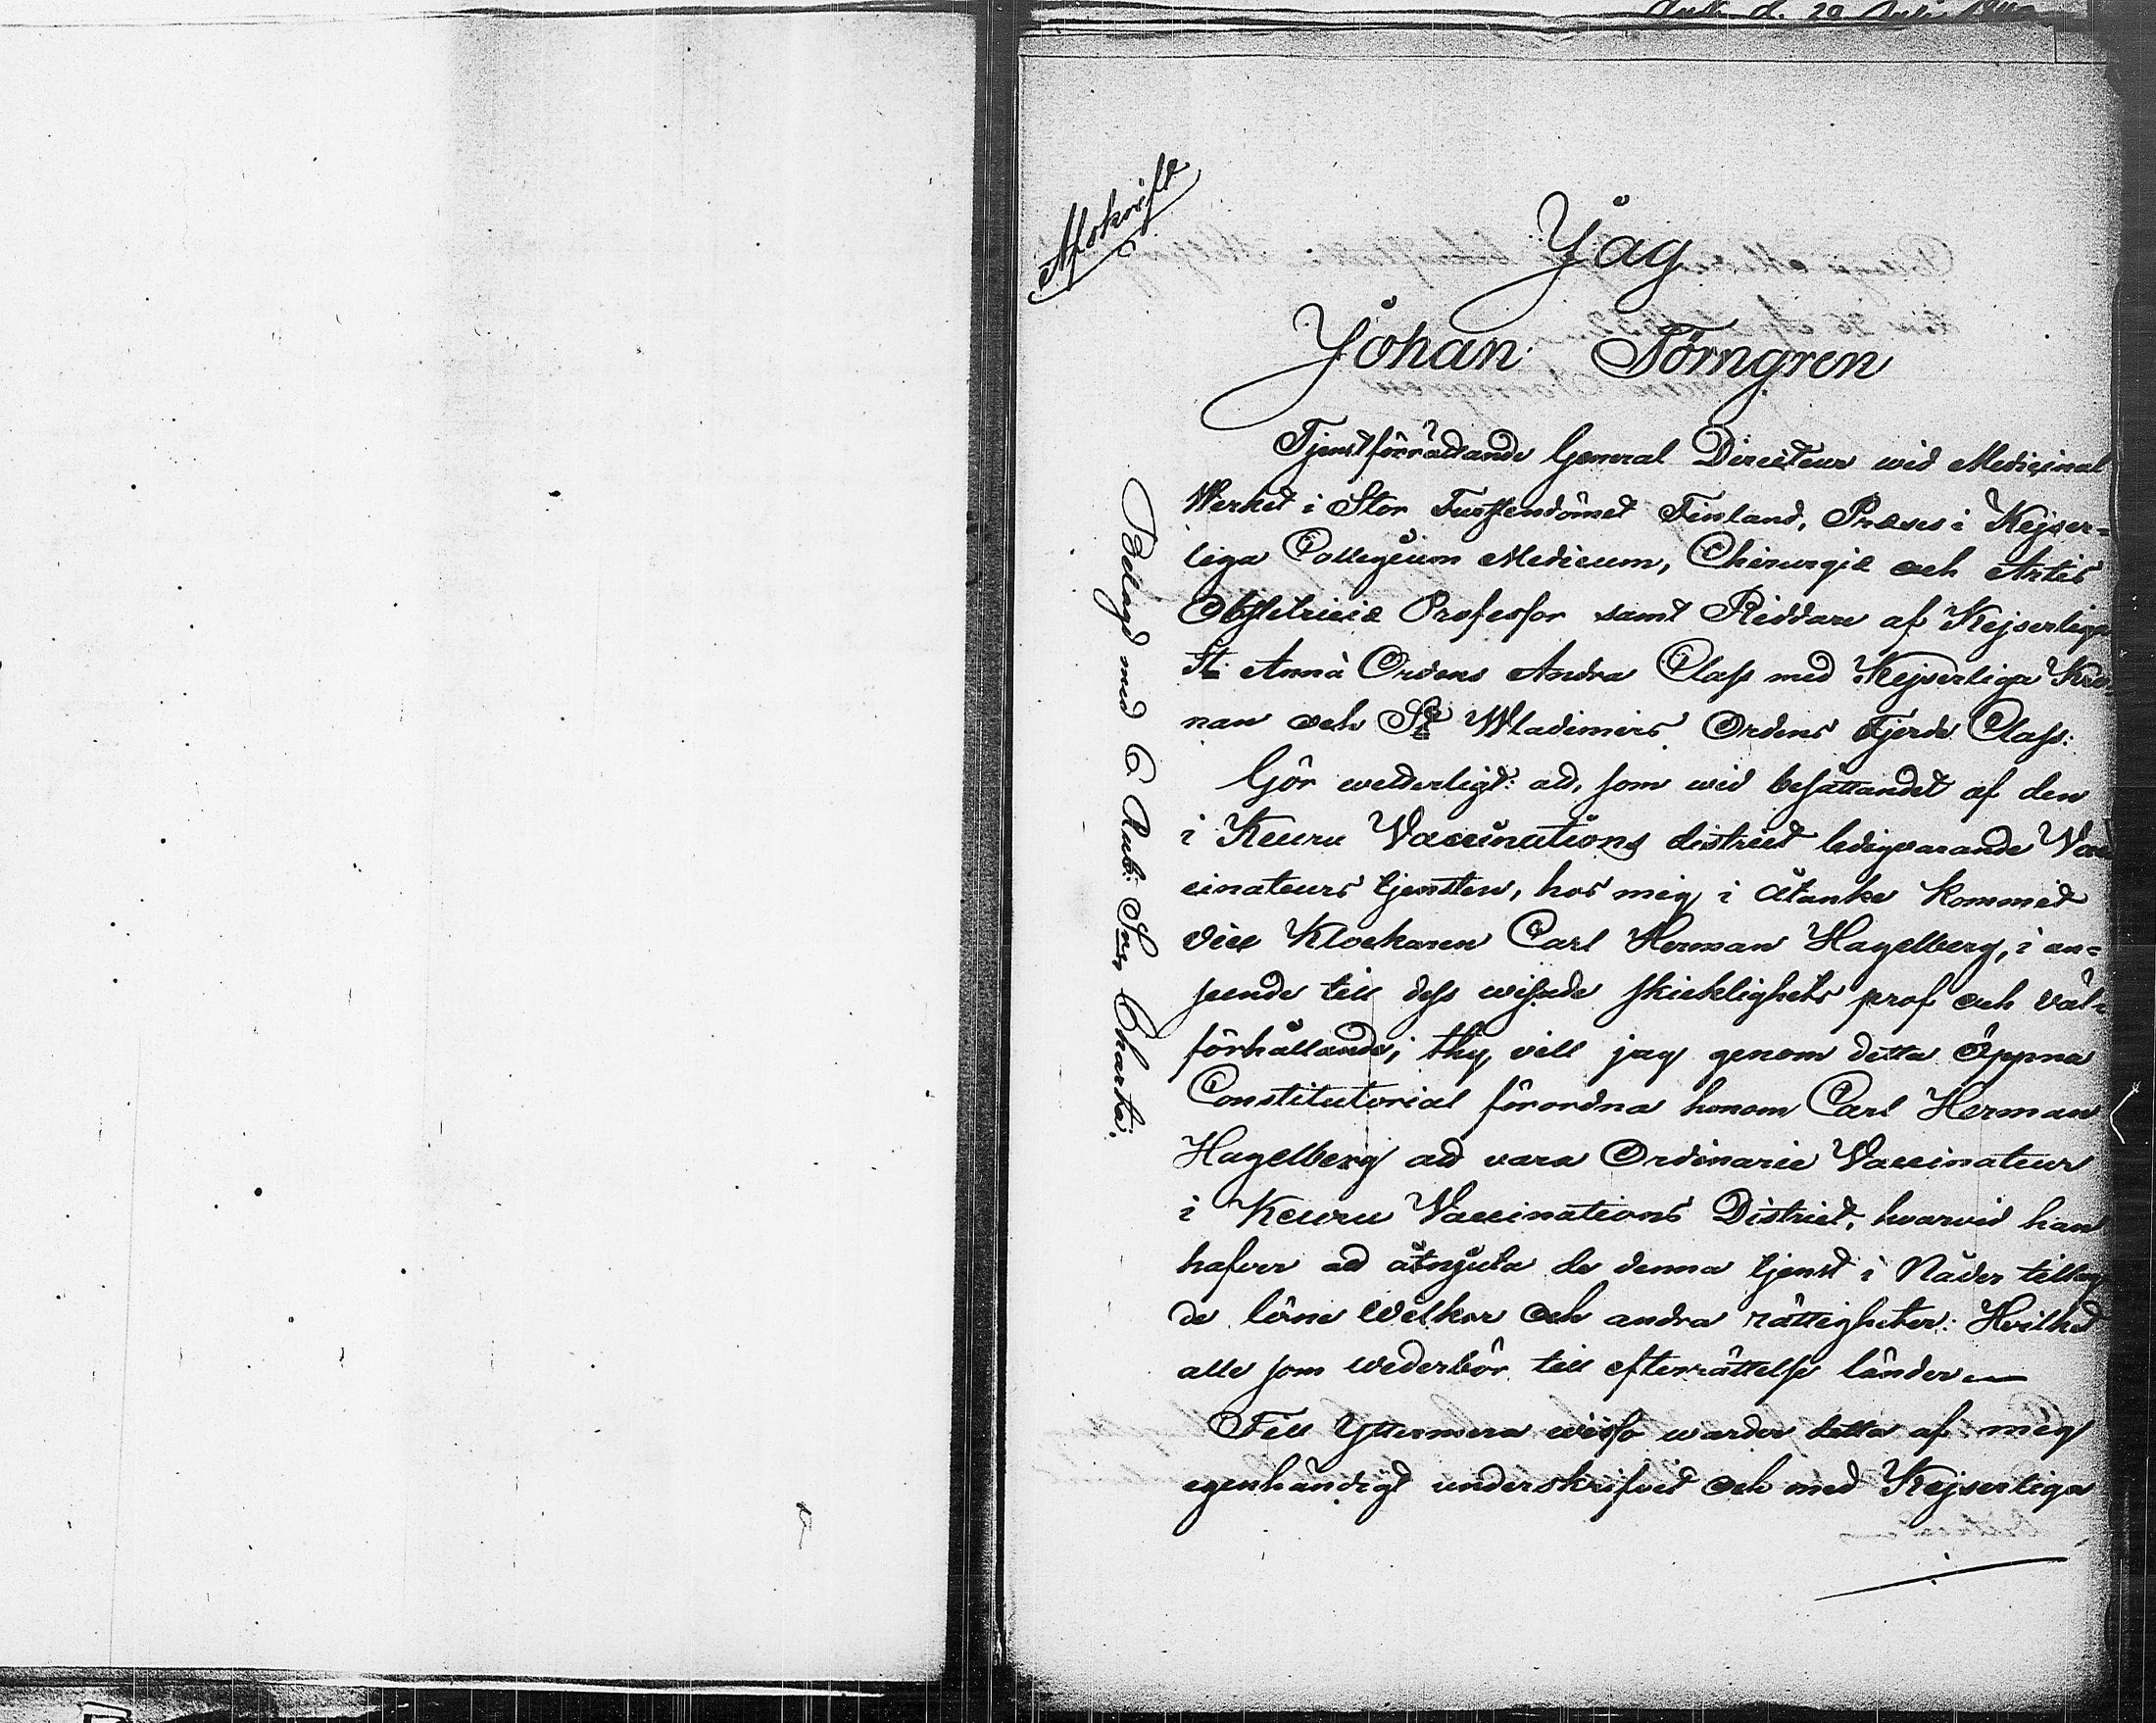 Afskrift
Jag
Johan Törngren
Tjenstförrättande General Directeur wid Medicinal
Werket i Stor Furstendömet Finland, Præses i Kejser-
liga Collegium Medicum, Chirurgiæ och Artis
Obstetriciæ Professor samt Riddare af Kejserliga
St Annæ Ordens Andra Class med Kejserliga Kro-
nan och St Wladimirs Ordens Fjerde Class:
Gör wetterligt: att, som wid besättandet af den
i Keuru Vaccinations district ledigvarande Vac
cinateurs tjensten, hos mig i åtanke kommit
Vice Klockaren Carl Herman Hagelberg, i an-
seende till dess wisade skicklighets prof och väl-
förhållande; thy vill jag genom detta öppna
Constitutorial förordna honom Carl Herman
Hagelberg att vara Ordinarie Vaccinateur
i Keuru Vaccinations District, hvarvid han
hafver att åtnjuta de denna tjenst i Nåder tillag
de löne wilkor och andra rättigheter: Hvilket
alle som wederbör till efterrättelse länder
Till Yttermera wisso warder detta af mig
egenhändigt underskrifvet och med Kejserliga
Belagd med 6 Rub: Svr Charta.